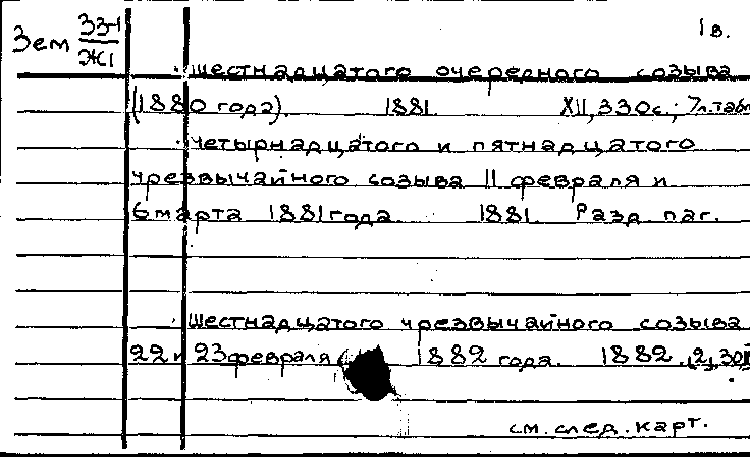 Зем 33-1 1в.
Ж1
. Шестнадцатого очередного созыва
(1880 года). 1881. XII, 330с.; 7л.табл
. Четырнадцатого и пятнадцатого
чрезвычайного созыва 11 февраля и
6 марта 1881 года. 1881. Разд. паг.
. Шестнадцатого чрезвычайного созыва
22 и 23 февраля 1882 года. 1882.
см. след. карт.